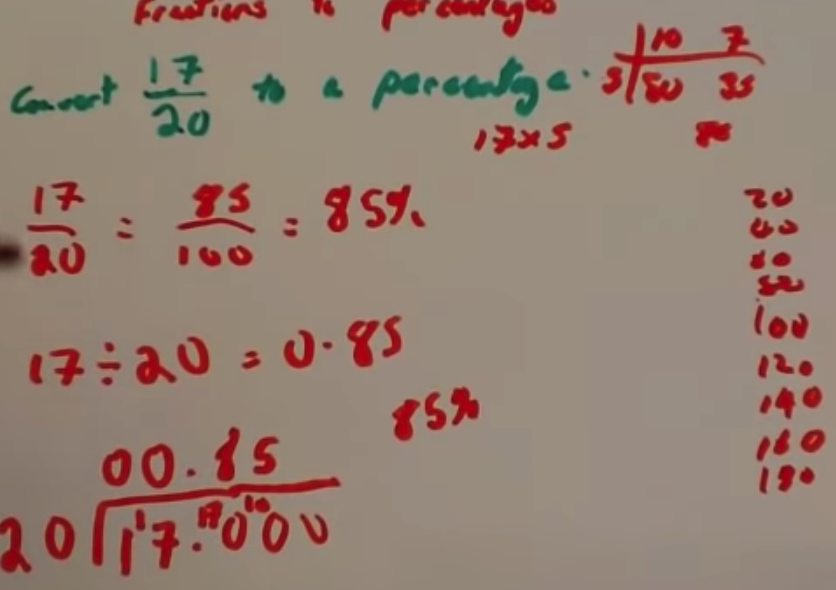 Fractions to percentages
Convert 17/20 to a percentage.
10 7
5 50 35
17×5 85
17/20 = 85/100 = 85%
17÷20 = 0.85
85%
00.85
20 1¹7.¹⁷0¹⁰00
20
40
60
80
100
120
140
160
180